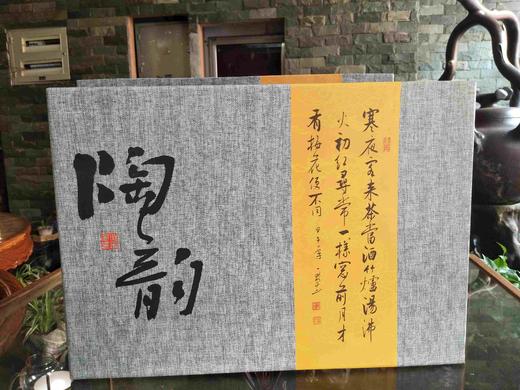 陶韵
寒夜客来茶當酒竹爐湯沸
火初红尋常一樣窗前月才
有梅花便不同